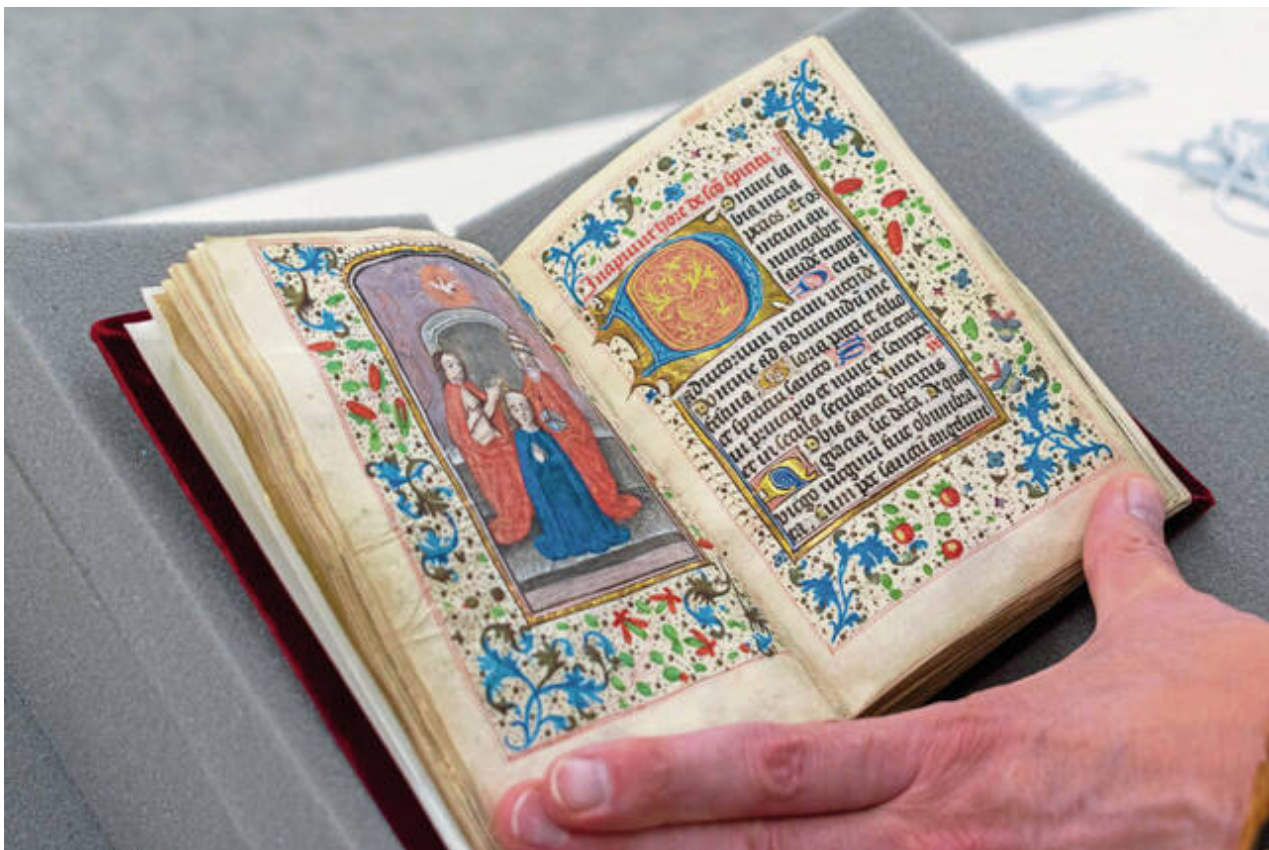 Incipiunt hore de sco spiritu :
Domine la
bia mea a
peries. Et os
meum an
nunciabit
laudē tuam
Deus i
adiutorium meum intende
Domine ad adiuuandū me
festina Gloria patri et filio
et spiritui sancto Sicut erat
in principio et nunc et semper
et in secula seculorū. Amen
Nobis sancti spiritus
gracia sit data. De qua
virgo virginū fuit obumbra
ta. Cum per sanctū angelum